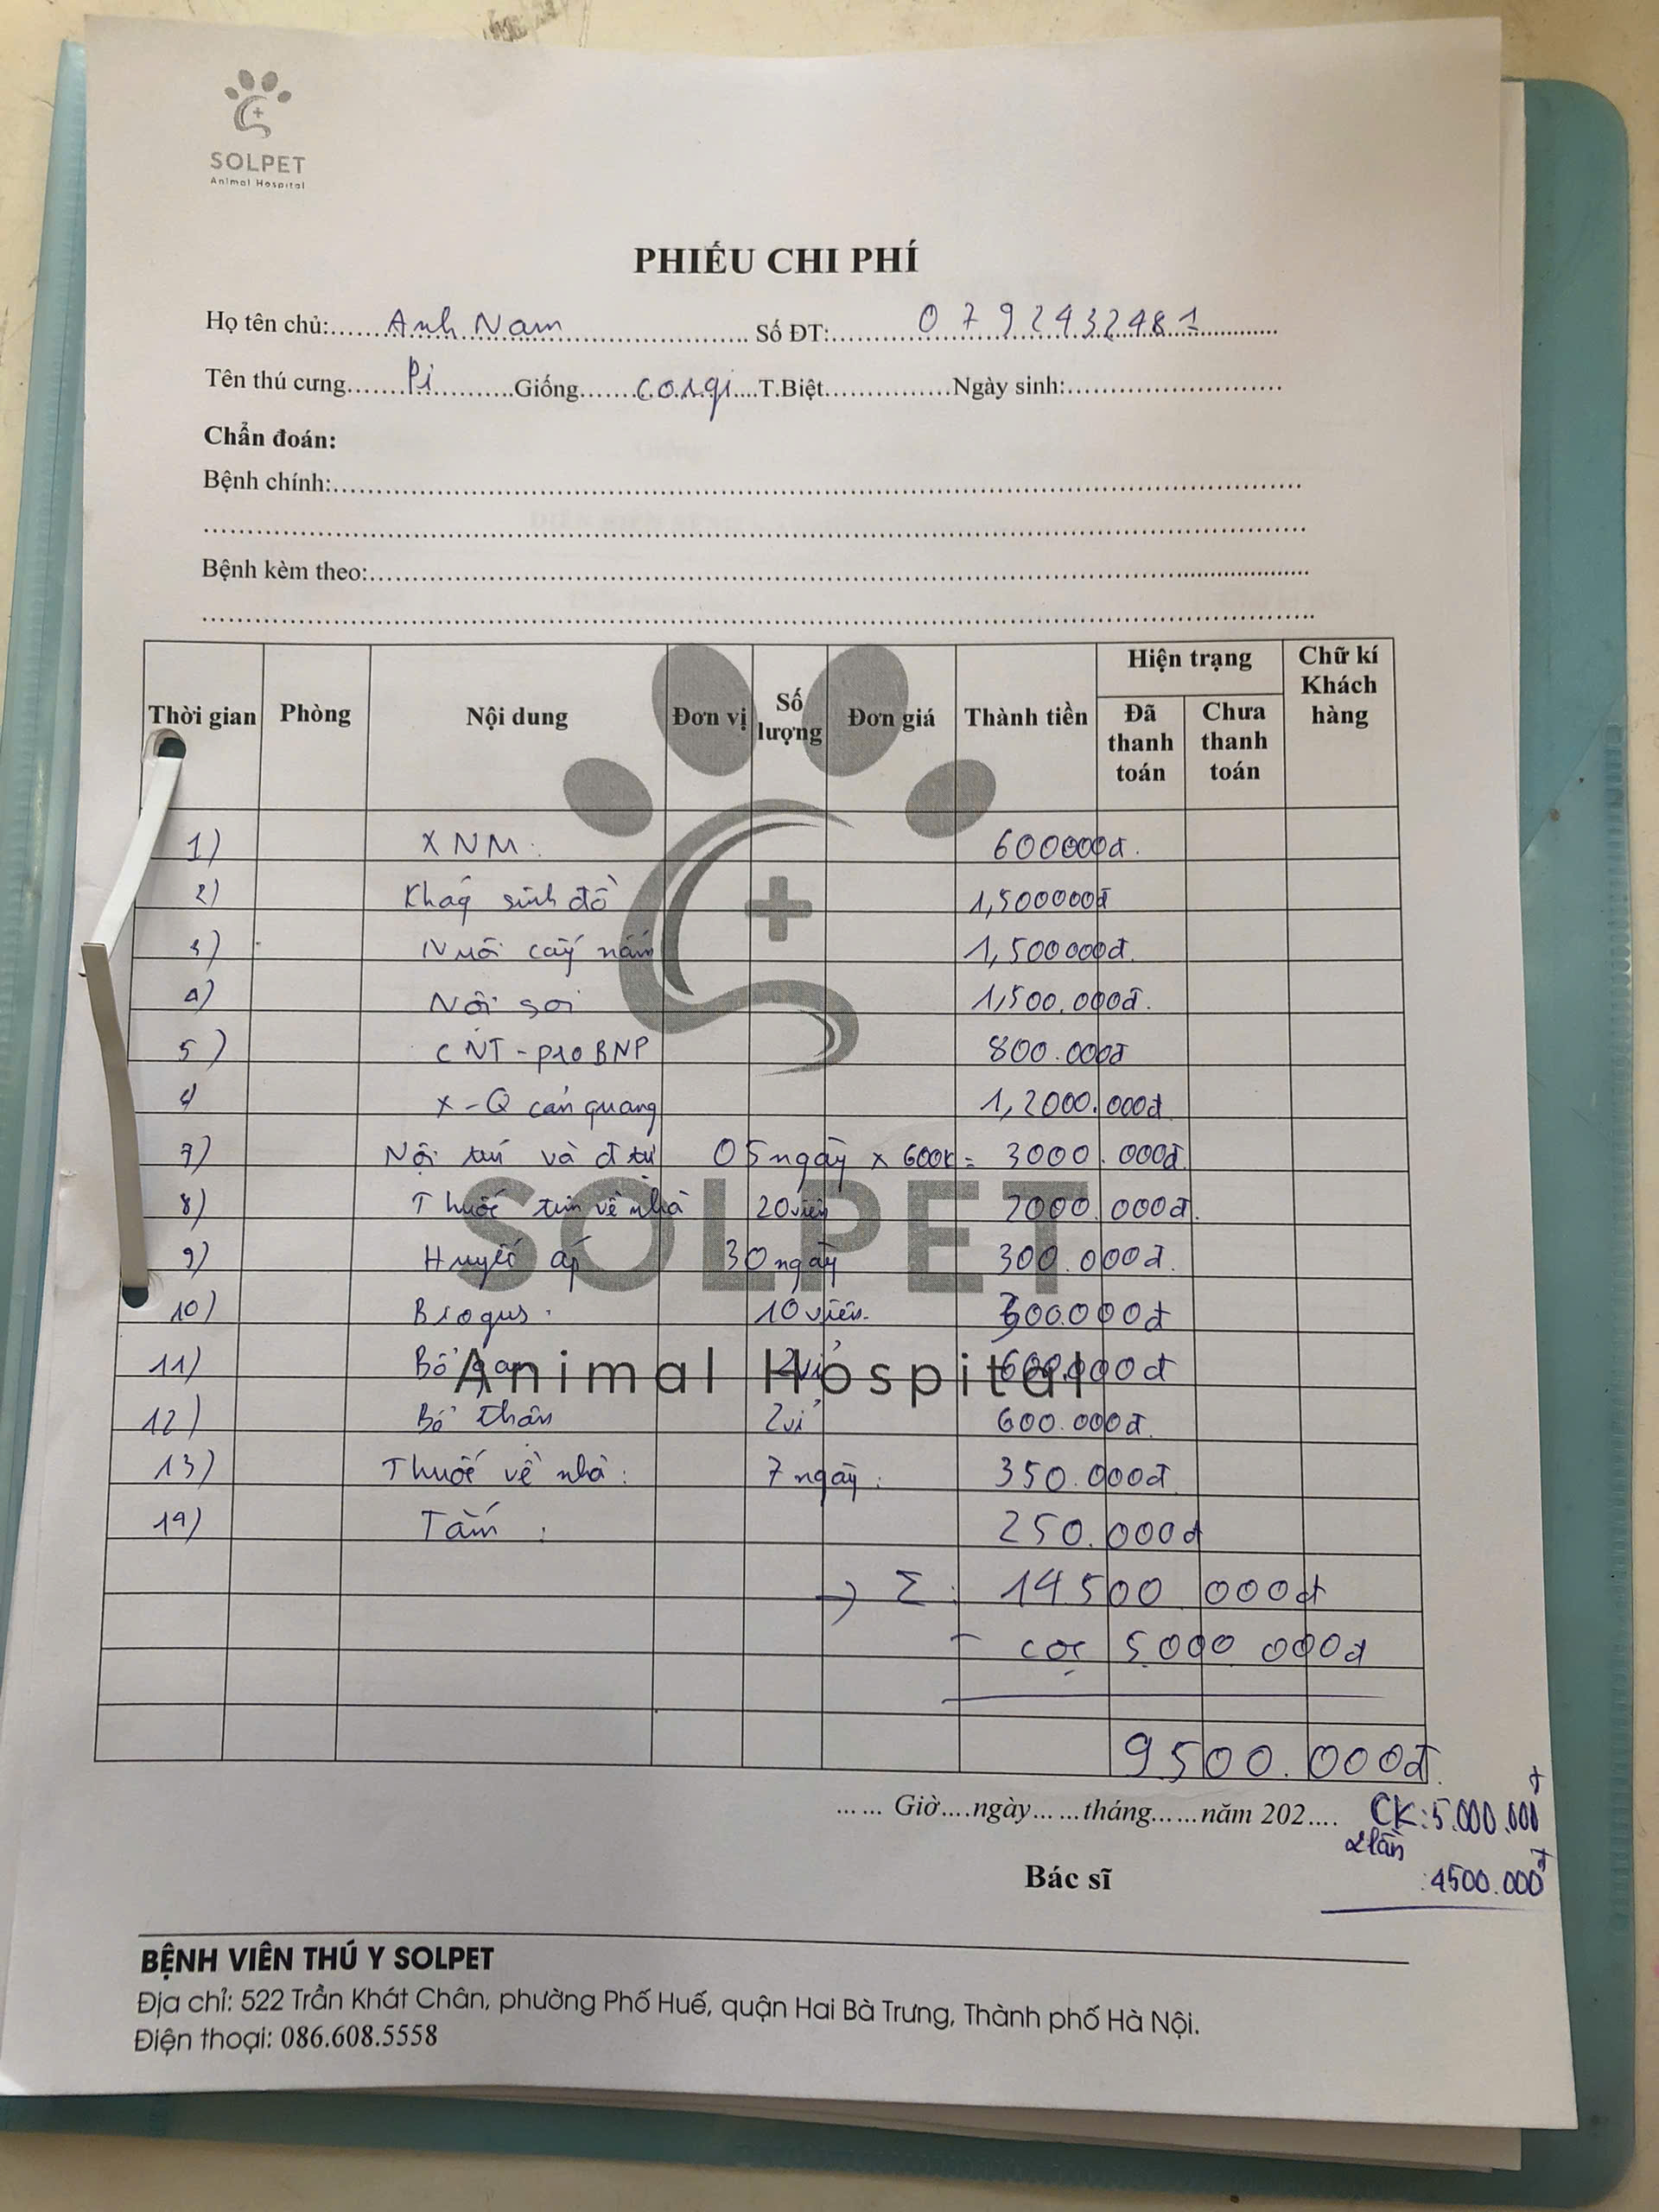 SOLPET
Animal Hospital
PHIẾU CHI PHÍ
Họ tên chủ:......Anh Nam...... Số ĐT:......0792432481......
Tên thú cưng......Pi......Giống......corgi....T.Biệt...............Ngày sinh:..........................
Chẩn đoán:
Bệnh chính:
Bệnh kèm theo:
Thời gian Phòng Nội dung Đơn vị Số lượng Đơn giá Thành tiền Hiện trạng Đã thanh toán Chưa thanh toán Chữ kí Khách hàng
1) XNM: 600000đ.
2) Kháng sinh đồ 1,500000đ
3) Nuôi cấy nấm 1,500000đ.
4) Nội soi 1,500.000đ.
5) CNT-proBNP 800.000đ
6) X-Q cản quang 1,2000.000đ
7) Nội trú và đ trị 05 ngày x 600K = 3000.000đ
8) Thuốc tim về nhà 20 viên 2000.000đ.
9) Huyết áp 30 ngày 300.000đ.
10) 10 viên. 300.000đ
11) Bổ gan 2 vỉ 600.000đ
12) Bổ thận 2 vỉ 600.000đ.
13) Thuốc về nhà: 7 ngày: 350.000đ
14) Tắm: 250.000đ
→ Σ: 14500 000đ
- cọc 5.000 000đ
9500.000đ.
SOLPET
Animal Hospital
...... Giờ....ngày......tháng......năm 202....
CK: 5.000.000đ
2 lần
: 4500.000đ
Bác sĩ
BỆNH VIỆN THÚ Y SOLPET
Địa chỉ: 522 Trần Khát Chân, phường Phố Huế, quận Hai Bà Trưng, Thành phố Hà Nội.
Điện thoại: 086.608.5558